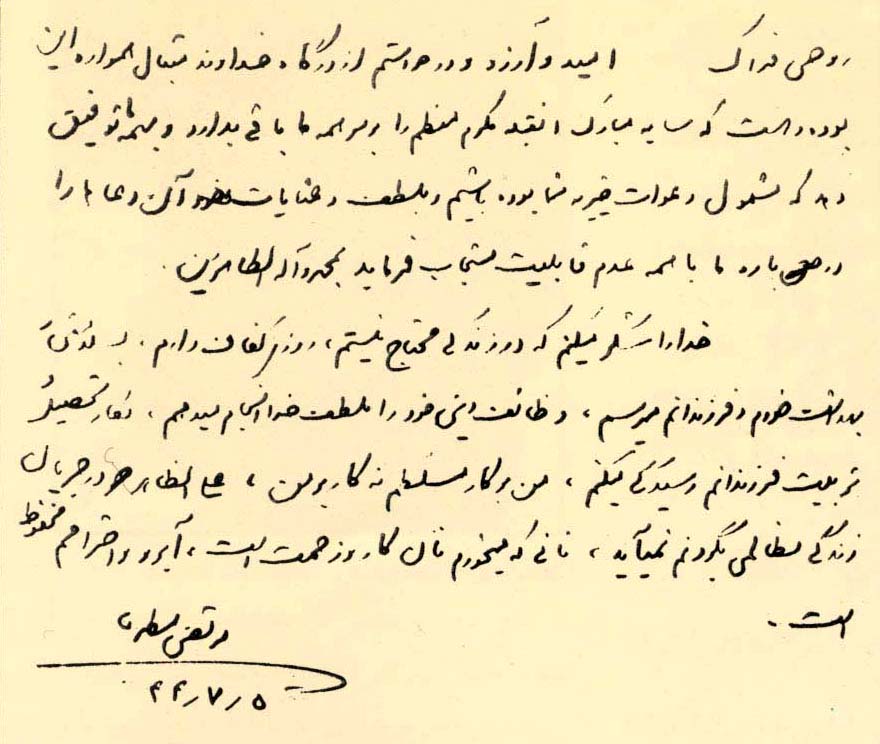 روحی فداک امید و آرزو و درخواستم از درگاه خداوند متعال همواره این
بوده و هست که سایه مبارک آنقبله مکرم معظم را بر سر همه ما باقی بدارد و بهمه ما توفیق
دهد که مشمول دعوات خیریه شما بوده باشیم و بلطف و عنایات خود آن دعاها را
در باره ما با همه عدم قابلیت مستجاب فرماید بمحمد و آله الطاهرین.
خدا را شکر میکنم که در زندگی محتاج نیستم، روزی کفاف دارم،
بهداشت خودم و فرزندانم میرسم، وظائف دینی خود را بلطف خدا انجام میدهم، بکار تحصیل و
تربیت فرزندانم رسیدگی میکنم، من بر کار مسلطم نه کار بر من، علی الظاهر در جریان
زندگی مظالمی بگردنم نمیآید، نانی که میخورم نان کار و زحمت است، آبرو و احترامم محفوظ
است.
مرتضی مطهری
۴۴٫۷٫۵